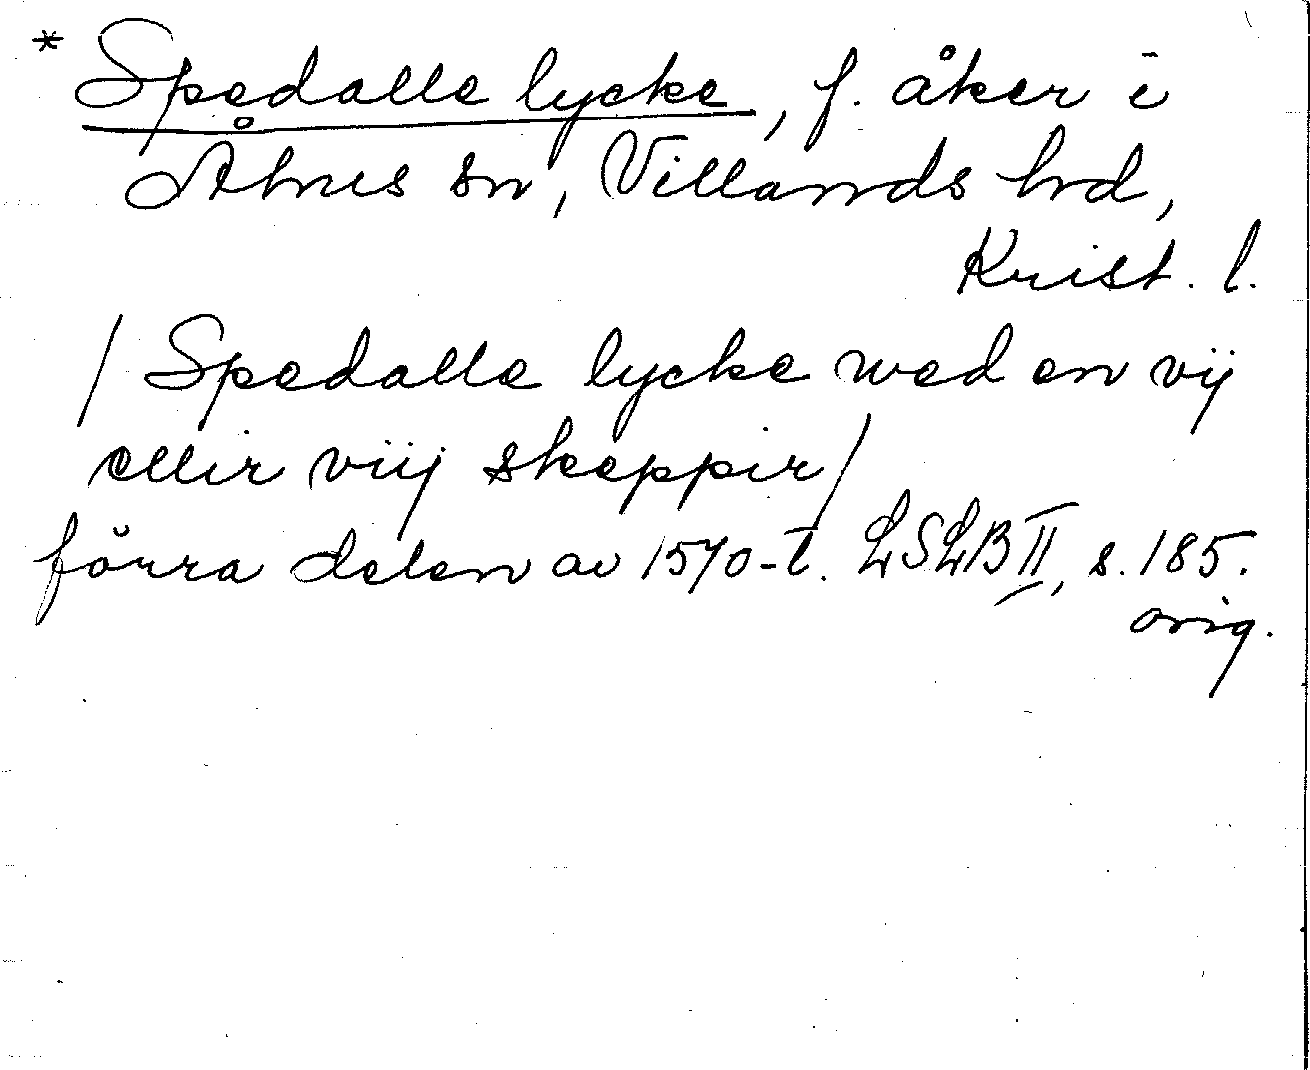 * Spedalle lycke, f. åker i
Åhus sn, Villands hd,
Krist. l.
/ Spedalle lycke wed en vij
ellir viij skeppir/
förra delen av 1570-t. LSLB II, s. 185.
orig.